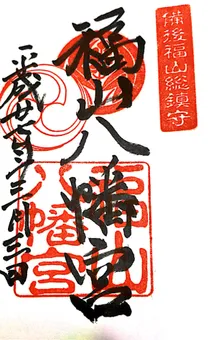 備後福山総鎮守
福山八幡宮
平成廿八年十二月三十日
福山
八幡宮